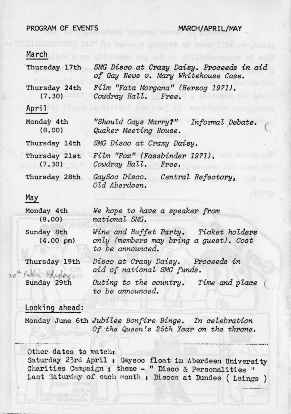 PROGRAM OF EVENTS MARCH/APRIL/MAY
March
Thursday 17th SMG Disco at Crazy Daisy. Proceeds in aid
of Gay News v. Mary Whitehouse Case.
Thursday 24th Film "Fata Morgana" (Herzog 1971).
(7.30) Cowdray Hall. Free.
April
Monday 4th "Should Gays Marry?" Informal Debate.
(8.00) Quaker Meeting House.
Thursday 14th SMG Disco at Crazy Daisy.
Thursday 21st Film "Fox" (Fassbinder 1971).
(7.30) Cowdray Hall. Free.
Thursday 28th GaySoc Disco. Central Refectory,
Old Aberdeen.
May
Monday 4th We hope to have a speaker from
(8.00) national SMG.
Sunday 8th Wine and Buffet Party. Ticket holders
(4.00 pm) only (members may bring a guest). Cost
to be announced.
Thursday 19th Disco at Crazy Daisy. Proceeds in
aid of national SMG funds.
Sunday 29th Outing to the country. Time and place
to be announced.
Looking ahead:
Monday June 6th Jubilee Bonfire Binge. In celebration
Of the Queen's 25th Year on the throne.
Other dates to watch:
Saturday 23rd April : Gaysoc float in Aberdeen University
Charities Campaign : theme - " Disco & Personalities "
Last Saturday of each month : Discos at Dundee ( Laings )